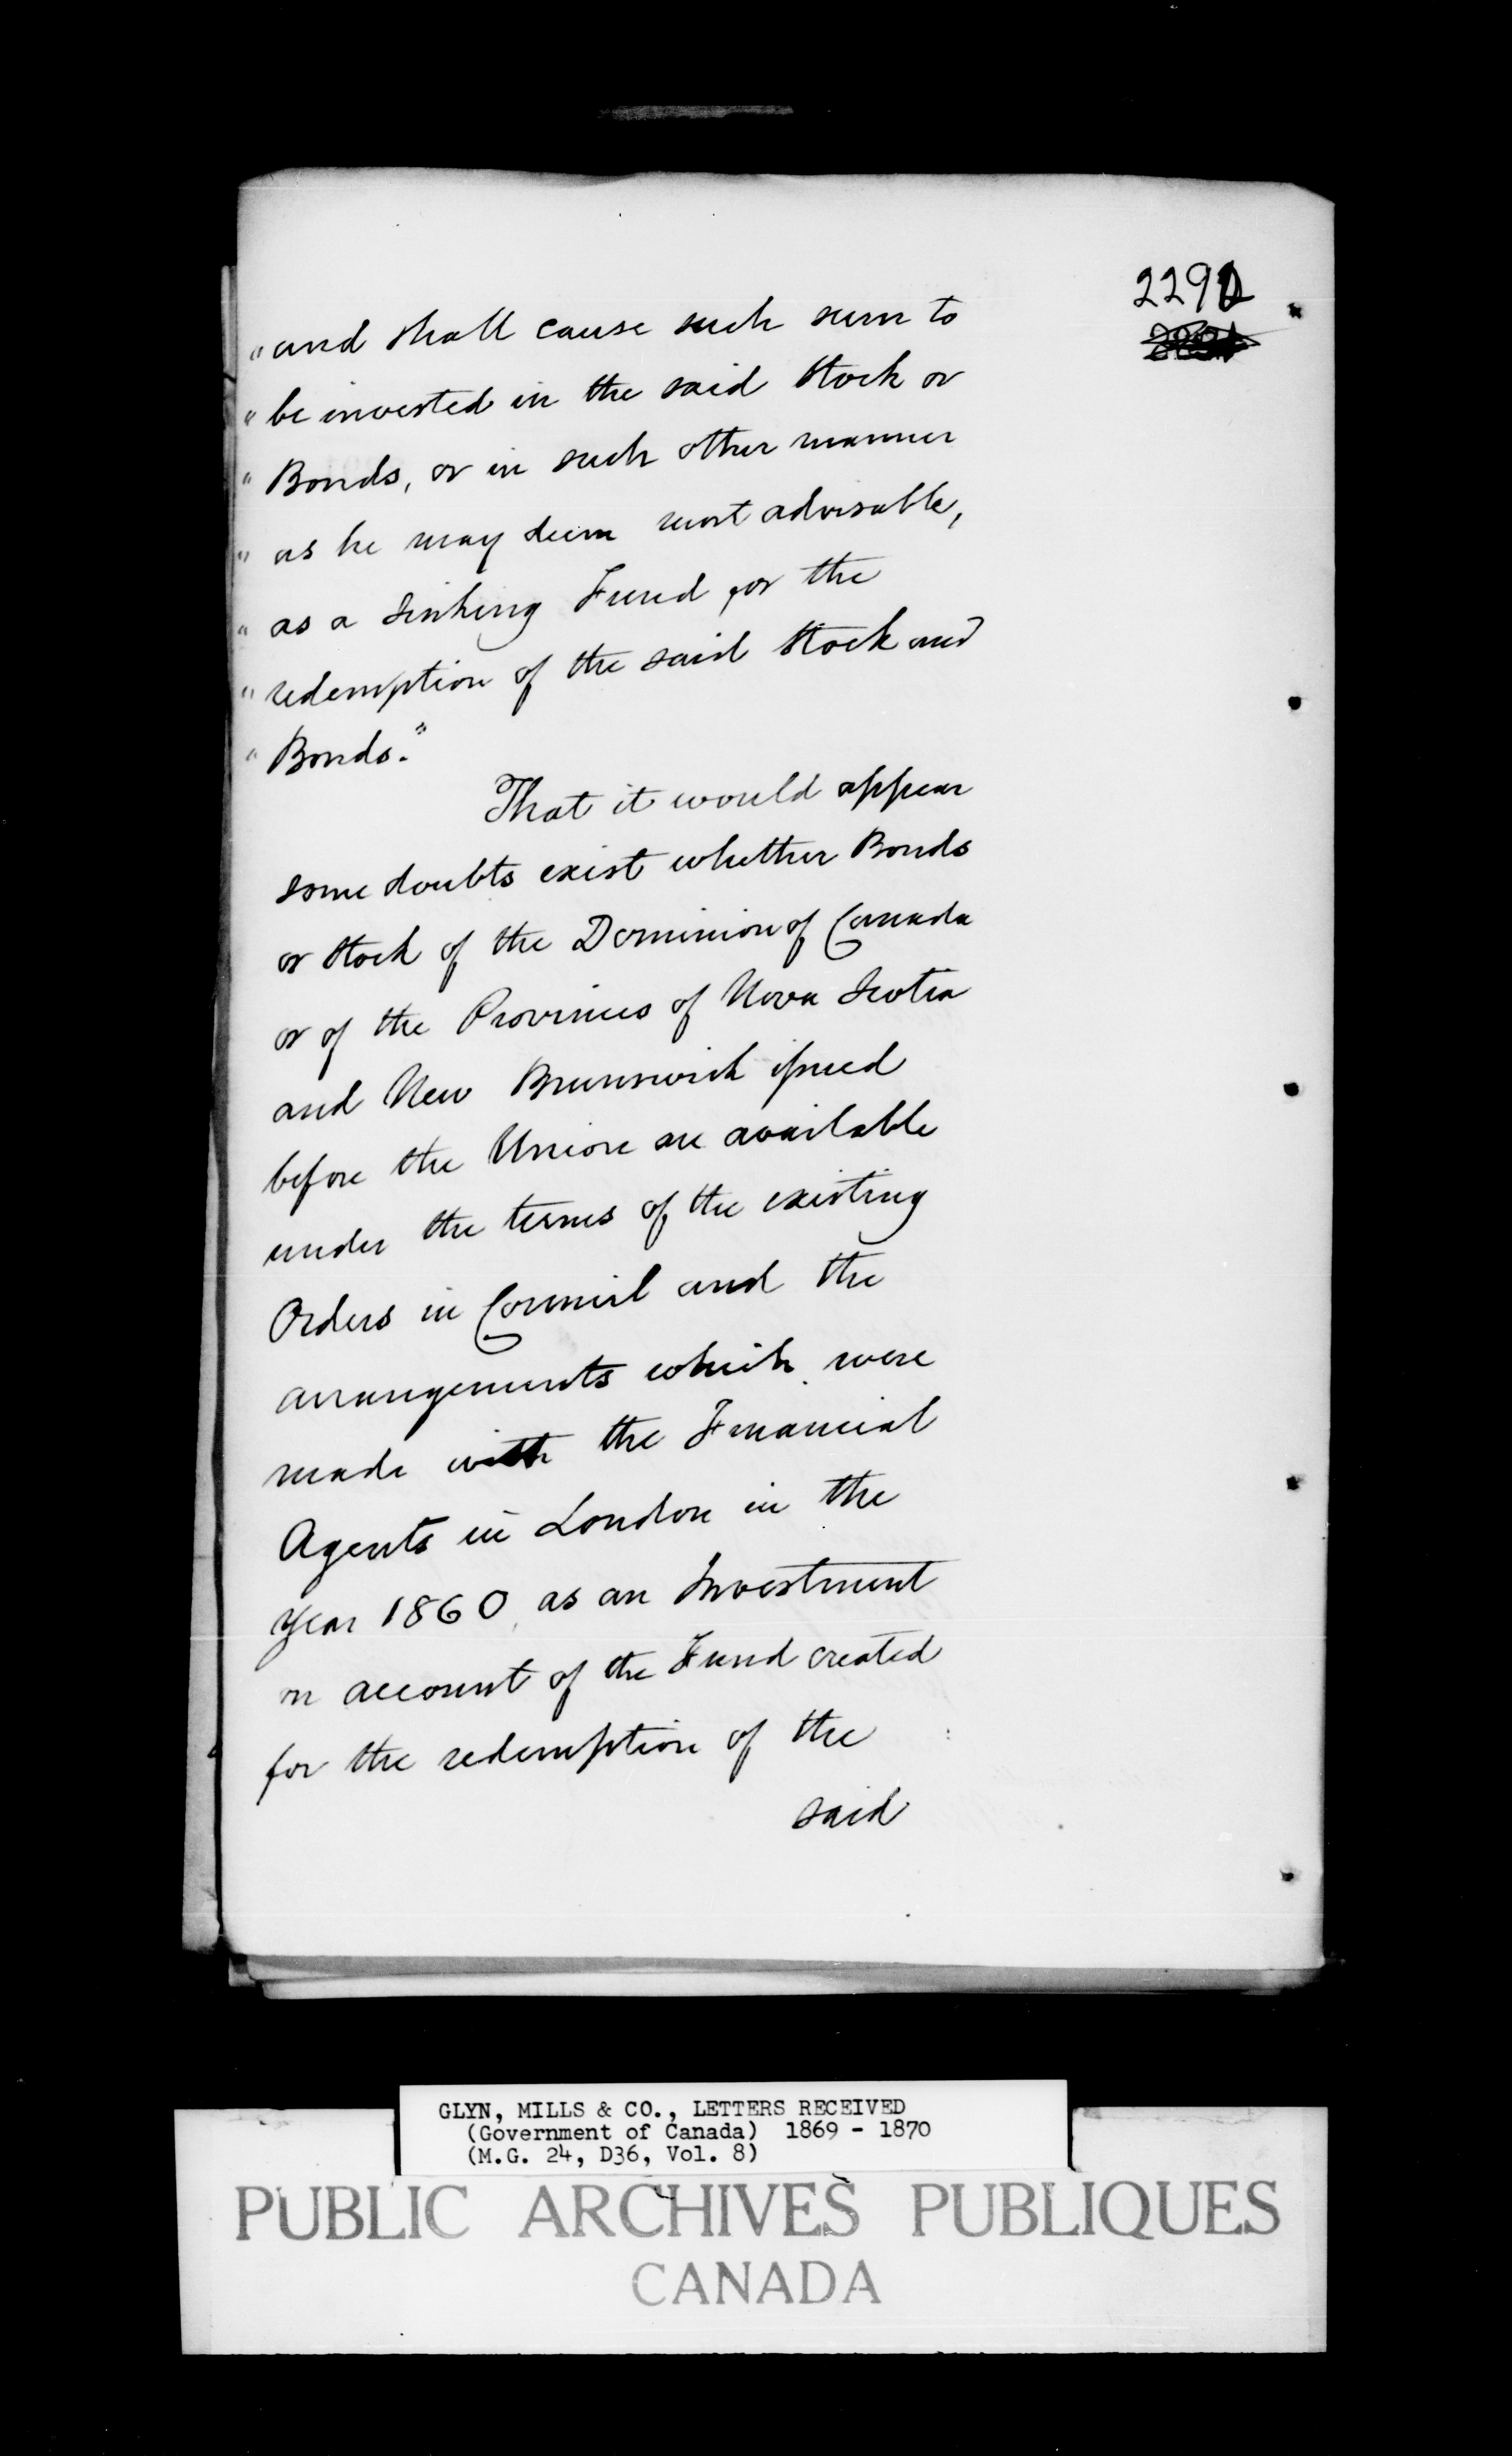 2292
"and shall cause such sum to
"be invested in the said Stock or
"Bonds, or in such other manner
"as he may deem most advisable,
"as a Sinking Fund for the
"redemption of the said Stock and
"Bonds."
That it would appear
some doubts exist whether Bonds
or Stock of the Dominion of Canada
or of the Provinces of Nova Scotia
and New Brunswick issued
before the Union are available
under the terms of the existing
Orders in Council and the
arrangements which were
made with the Financial
Agents in London in the
year 1860, as an Investment
on account of the Fund created
for the redemption of the
said
GLYN, MILLS & CO., LETTERS RECEIVED
(Government of Canada) 1869 - 1870
(M.G. 24, D36, Vol. 8)
PUBLIC ARCHIVES PUBLIQUES
CANADA